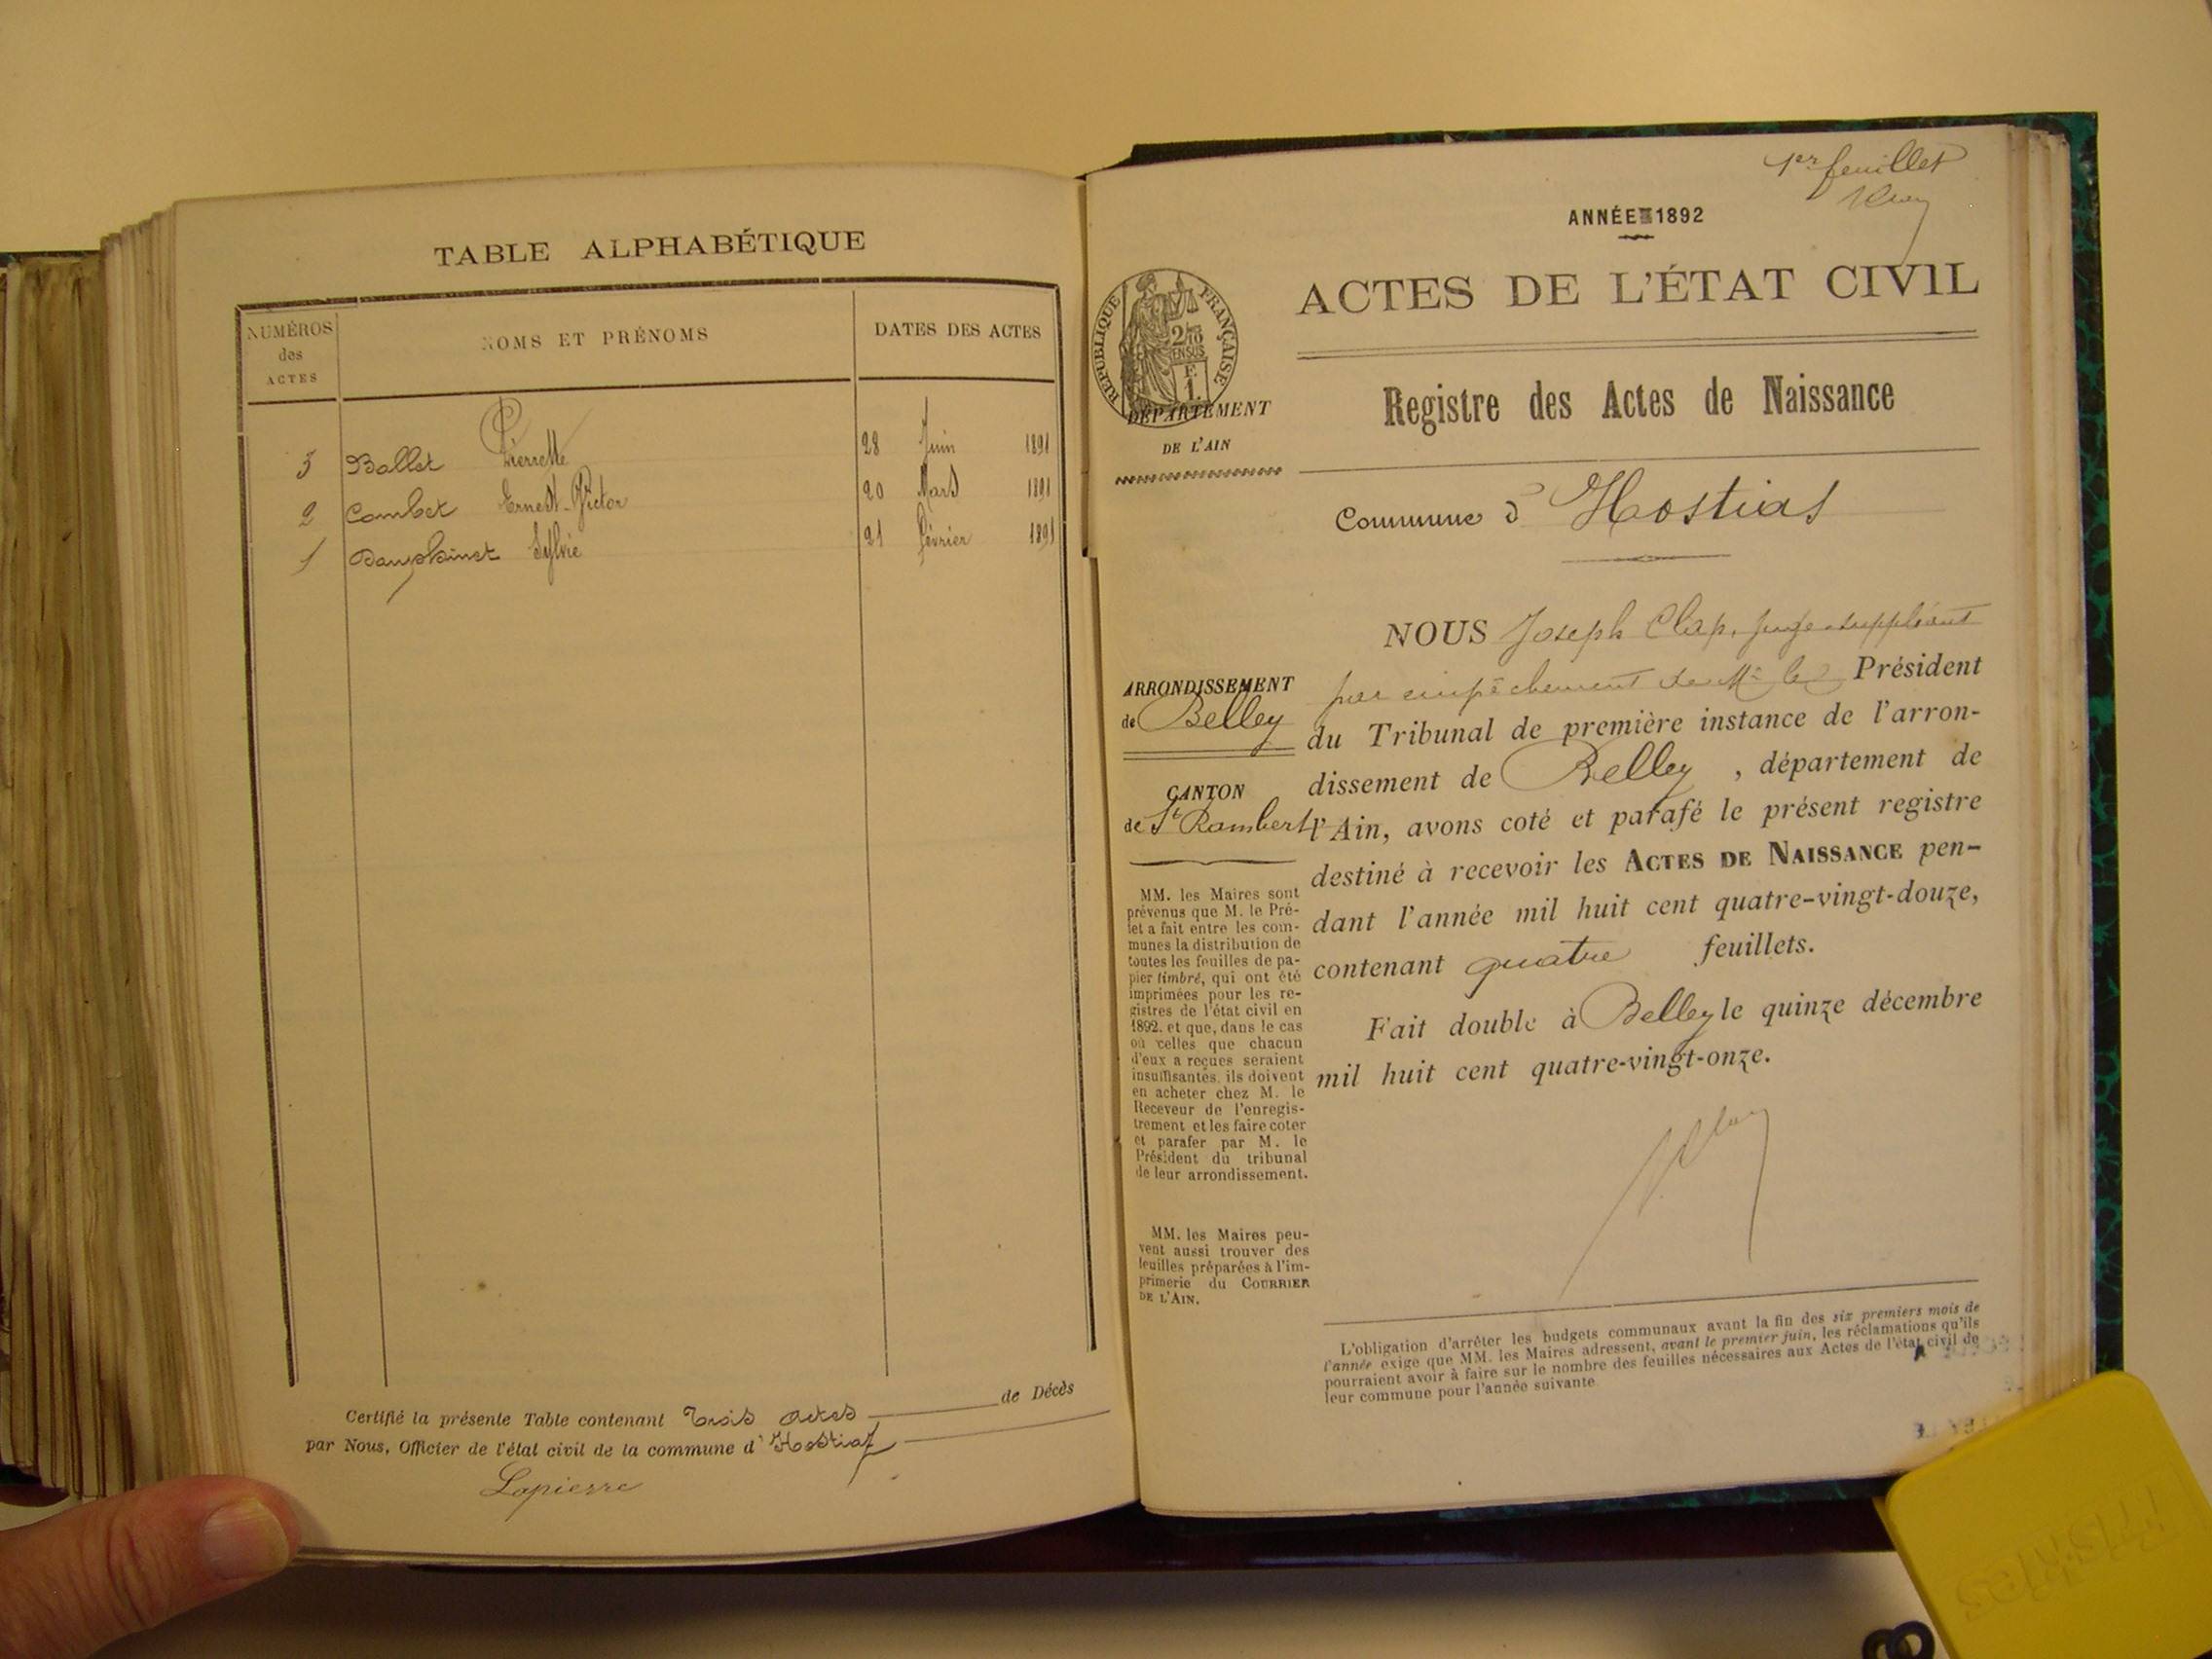 TABLE ALPHABÉTIQUE
NUMÉROS
des
ACTES
NOMS ET PRÉNOMS
DATES DES ACTES
3 Ballet Pierrette 28 Juin 1891
2 Combet Ernest-Victor 20 Mars 1891
1 Dauphinet Sylvie 21 Février 1891
Certifié la présente Table contenant trois actes de Décès
par Nous, Officier de l'état civil de la commune d'Hostiaz
Lapierre
1er feuillet
ANNÉE 1892
ACTES DE L'ÉTAT CIVIL
RÉPUBLIQUE FRANÇAISE
2/10
EN SUS
F.
1.
DÉPARTEMENT
DE L'AIN
Registre des Actes de Naissance
Commune d'Hostias
ARRONDISSEMENT
de Belley
CANTON
de St Rambert
MM. les Maires sont
prévenus que M. le Pré-
fet a fait entre les com-
munes la distribution de
toutes les feuilles de pa-
pier timbré, qui ont été
imprimées pour les re-
gistres de l'état civil en
1892, et que, dans le cas
où celles que chacun
d'eux a reçues seraient
insuffisantes, ils doivent
en acheter chez M. le
Receveur de l'enregis-
trement et les faire coter
et parafer par M. le
Président du tribunal
de leur arrondissement.
MM. les Maires peu-
vent aussi trouver des
feuilles préparées à l'im-
primerie du COURRIER
DE L'AIN.
NOUS Joseph Clap, juge-suppléant
par empêchement de Mr le Président
du Tribunal de première instance de l'arron-
dissement de Belley, département de
l'Ain, avons coté et parafé le présent registre
destiné à recevoir les ACTES DE NAISSANCE pen-
dant l'année mil huit cent quatre-vingt-douze,
contenant quatre feuillets.
Fait double à Belley le quinze décembre
mil huit cent quatre-vingt-onze.
L'obligation d'arrêter les budgets communaux avant la fin des six premiers mois de
l'année exige que MM. les Maires adressent, avant le premier juin, les réclamations qu'ils
pourraient avoir à faire sur le nombre des feuilles nécessaires aux Actes de l'état civil de
leur commune pour l'année suivante